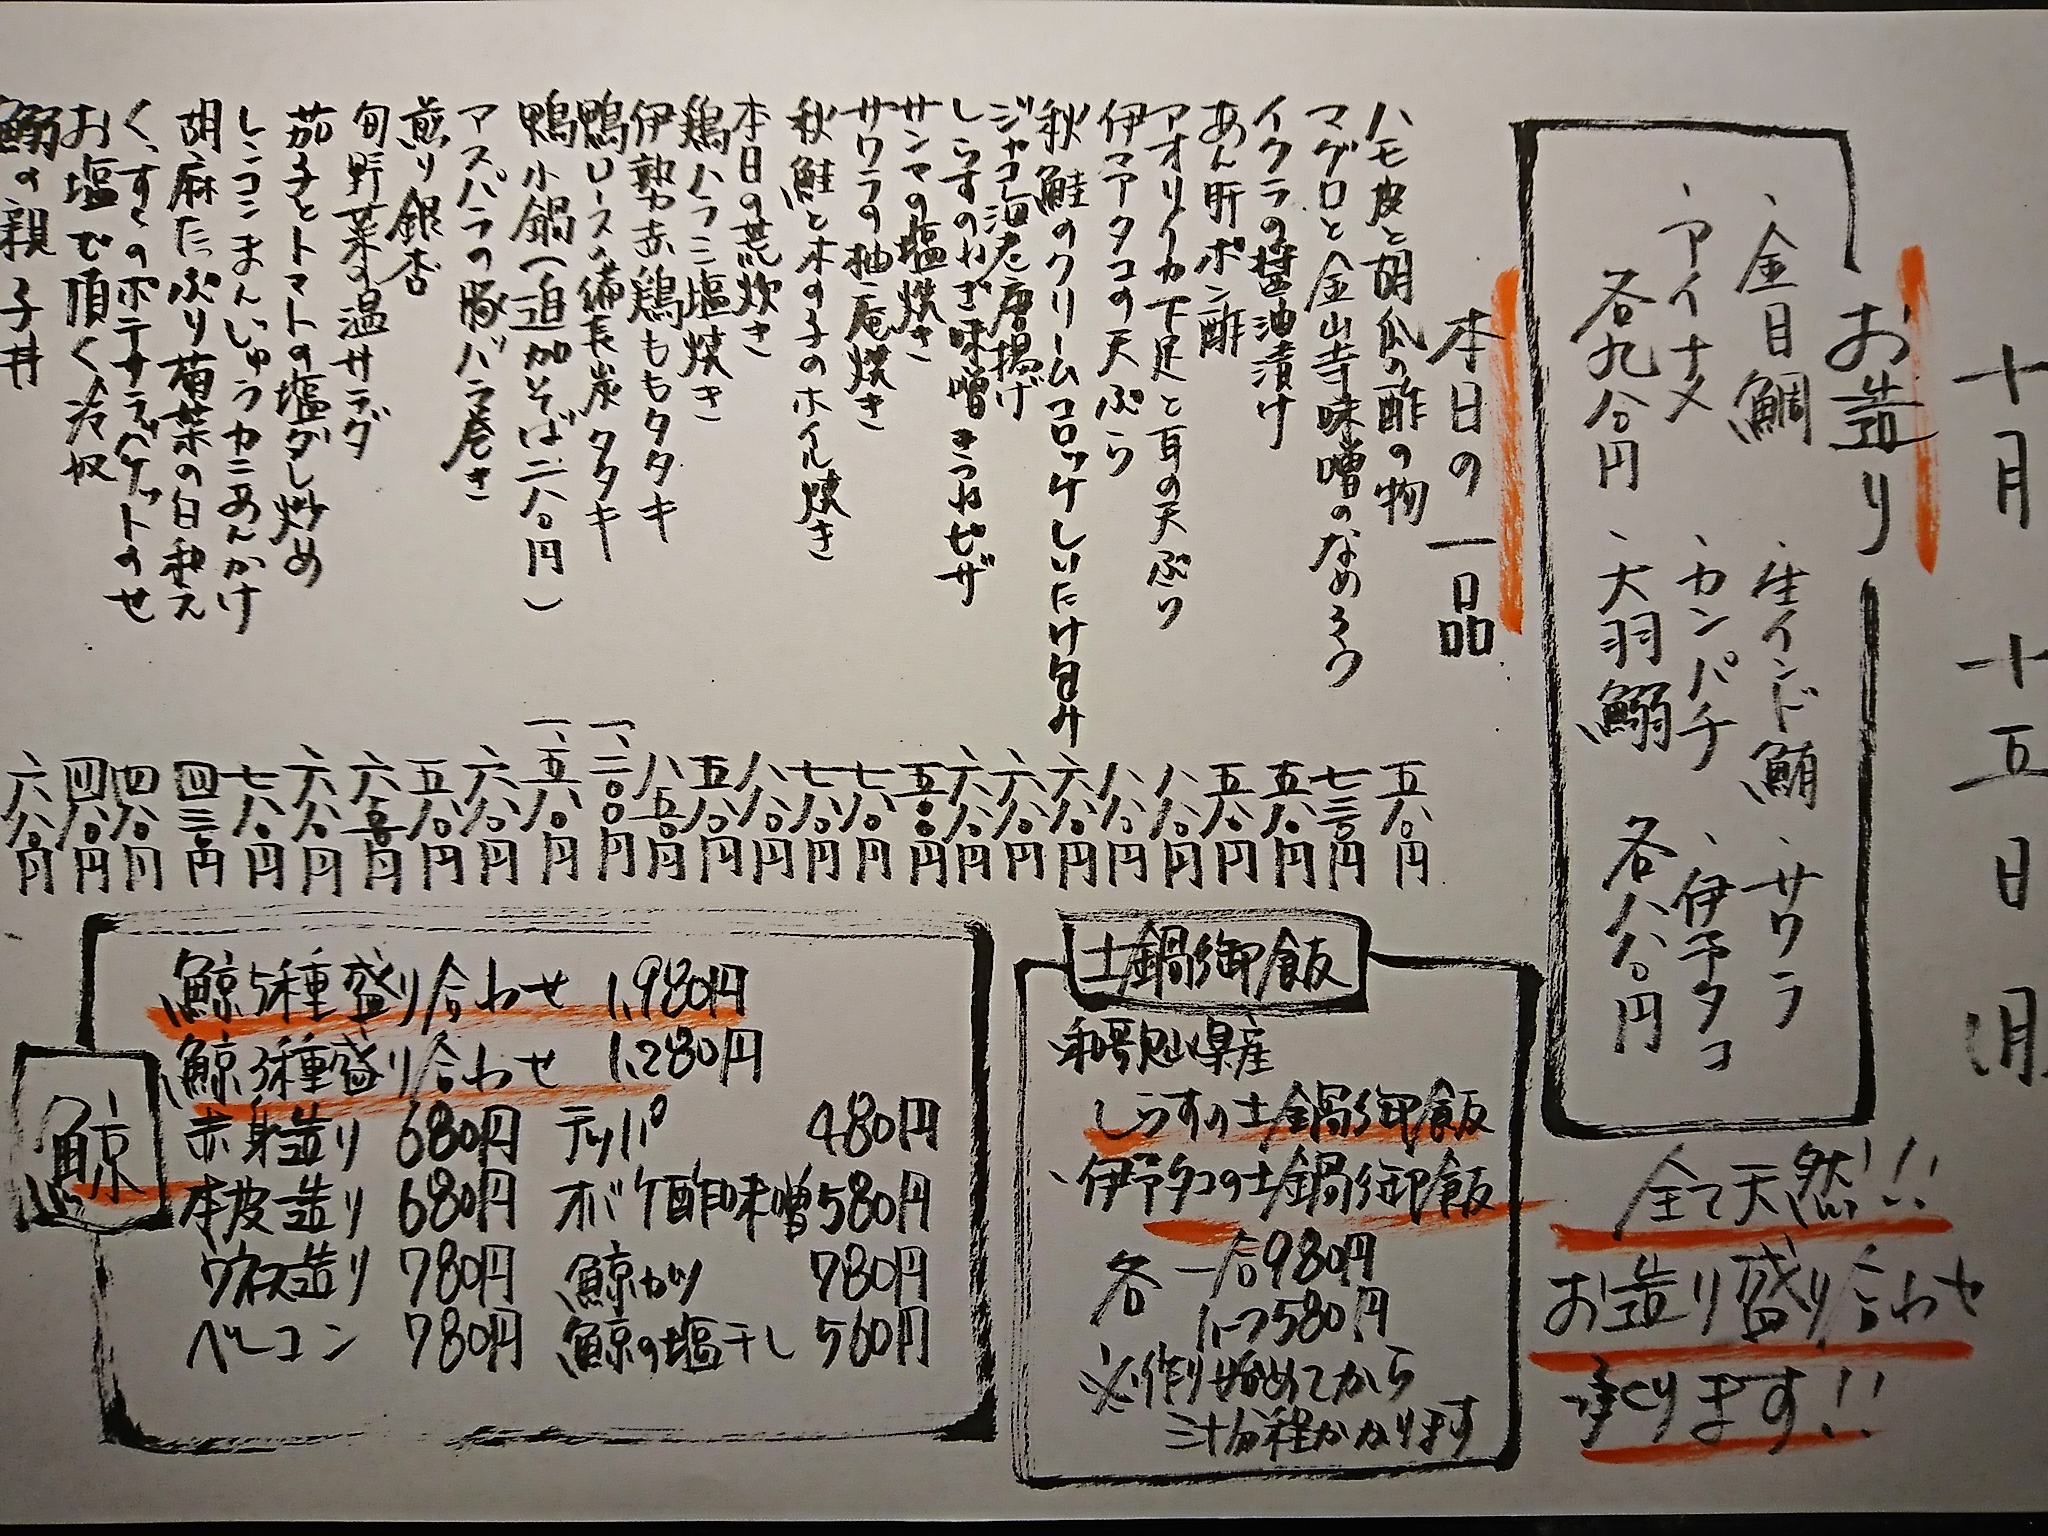 十月 十五日
お造り
、金目鯛 、生インド鮪 、サワラ
、アイナメ 、カンパチ 、伊予タコ
各九八〇円 、大羽鰯 各八八〇円
全て天然!!
お造り盛り合わせ
承ります!!
本日の一品
ハモ皮と胡瓜の酢の物 五八〇円
マグロと金山寺味噌のなめろう 七三〇円
イクラの醤油漬け 五八〇円
あん肝ポン酢 五八〇円
アオリイカ下足と耳の天ぷら 八八〇円
伊予タコの天ぷら 八八〇円
秋鮭のクリームコロッケしいたけ包み 六八〇円
ジャコ海老唐揚げ 六八〇円
しらすのねぎ味噌きつねピザ 六八〇円
サンマの塩焼き 五〇〇円
サワラの柚庵焼き 七八〇円
秋鮭と木の子のホイル焼き 七八〇円
本日の荒炊き 八八〇円
鶏ハラミ塩焼き 五八〇円
伊勢赤鶏ももタタキ 八五〇円
鴨ロースの備長炭タタキ 一、二〇〇円
鴨小鍋(追加そば二八〇円) 一、五八〇円
アスパラの豚バラ巻き 六八〇円
煎り銀杏 五八〇円
旬野菜の温サラダ 六五〇円
茄子とトマトの塩ダレ炒め 六八〇円
レンコンまんじゅうカニあんかけ 七八〇円
胡麻たっぷり菊菜の白和え 四三〇円
くんすくのポテサラバケットのせ 四八〇円
お塩で頂く冷奴 四八〇円
鰯の親子丼 六八〇円
土鍋御飯
和歌山県産
しらすの土鍋御飯
、伊予タコの土鍋御飯
各 一合980円
ハーフ580円
※作り始めてから
三十分程かかります
鯨
鯨5種盛り合わせ 1,980円
鯨3種盛り合わせ 1,280円
赤身造り 680円 テッパ 480円
本皮造り 680円 オバケ酢味噌 580円
ウネス造り 780円 鯨カツ 780円
ベーコン 780円 鯨の塩干し 560円